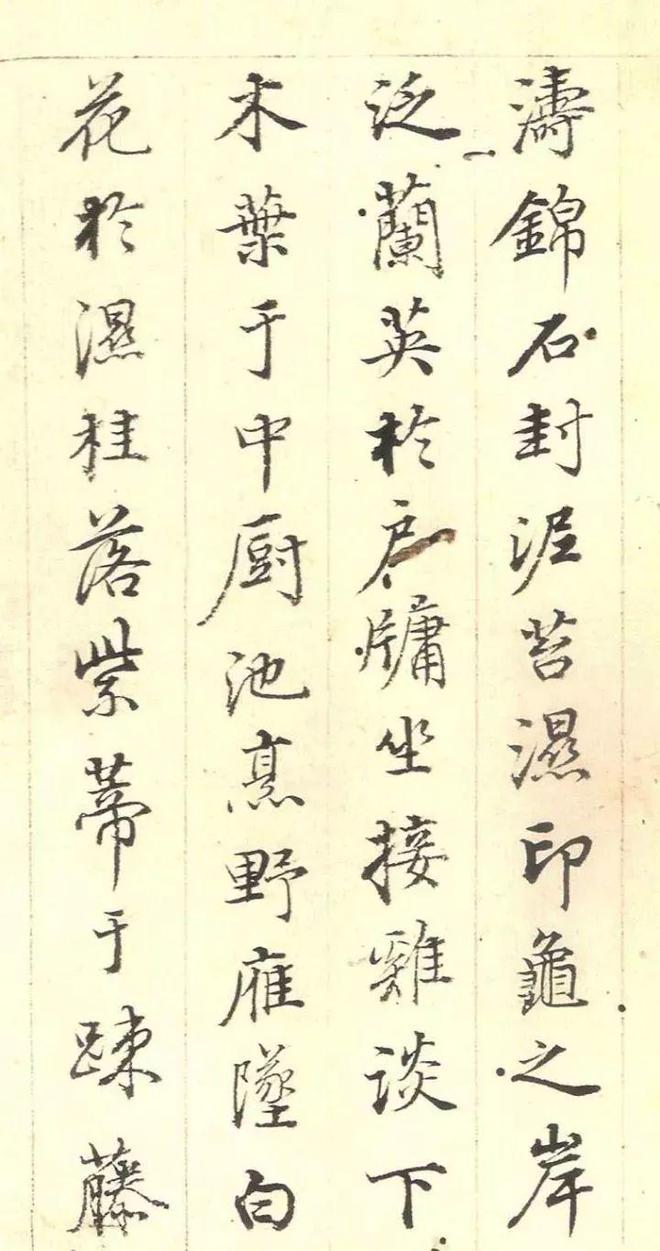 濤錦石封泥苔濕印龜之岸
泛蘭英於户牖坐接雞談下
木葉于中厨池烹野雁墜白
花於濕桂落紫蔕于踈藤